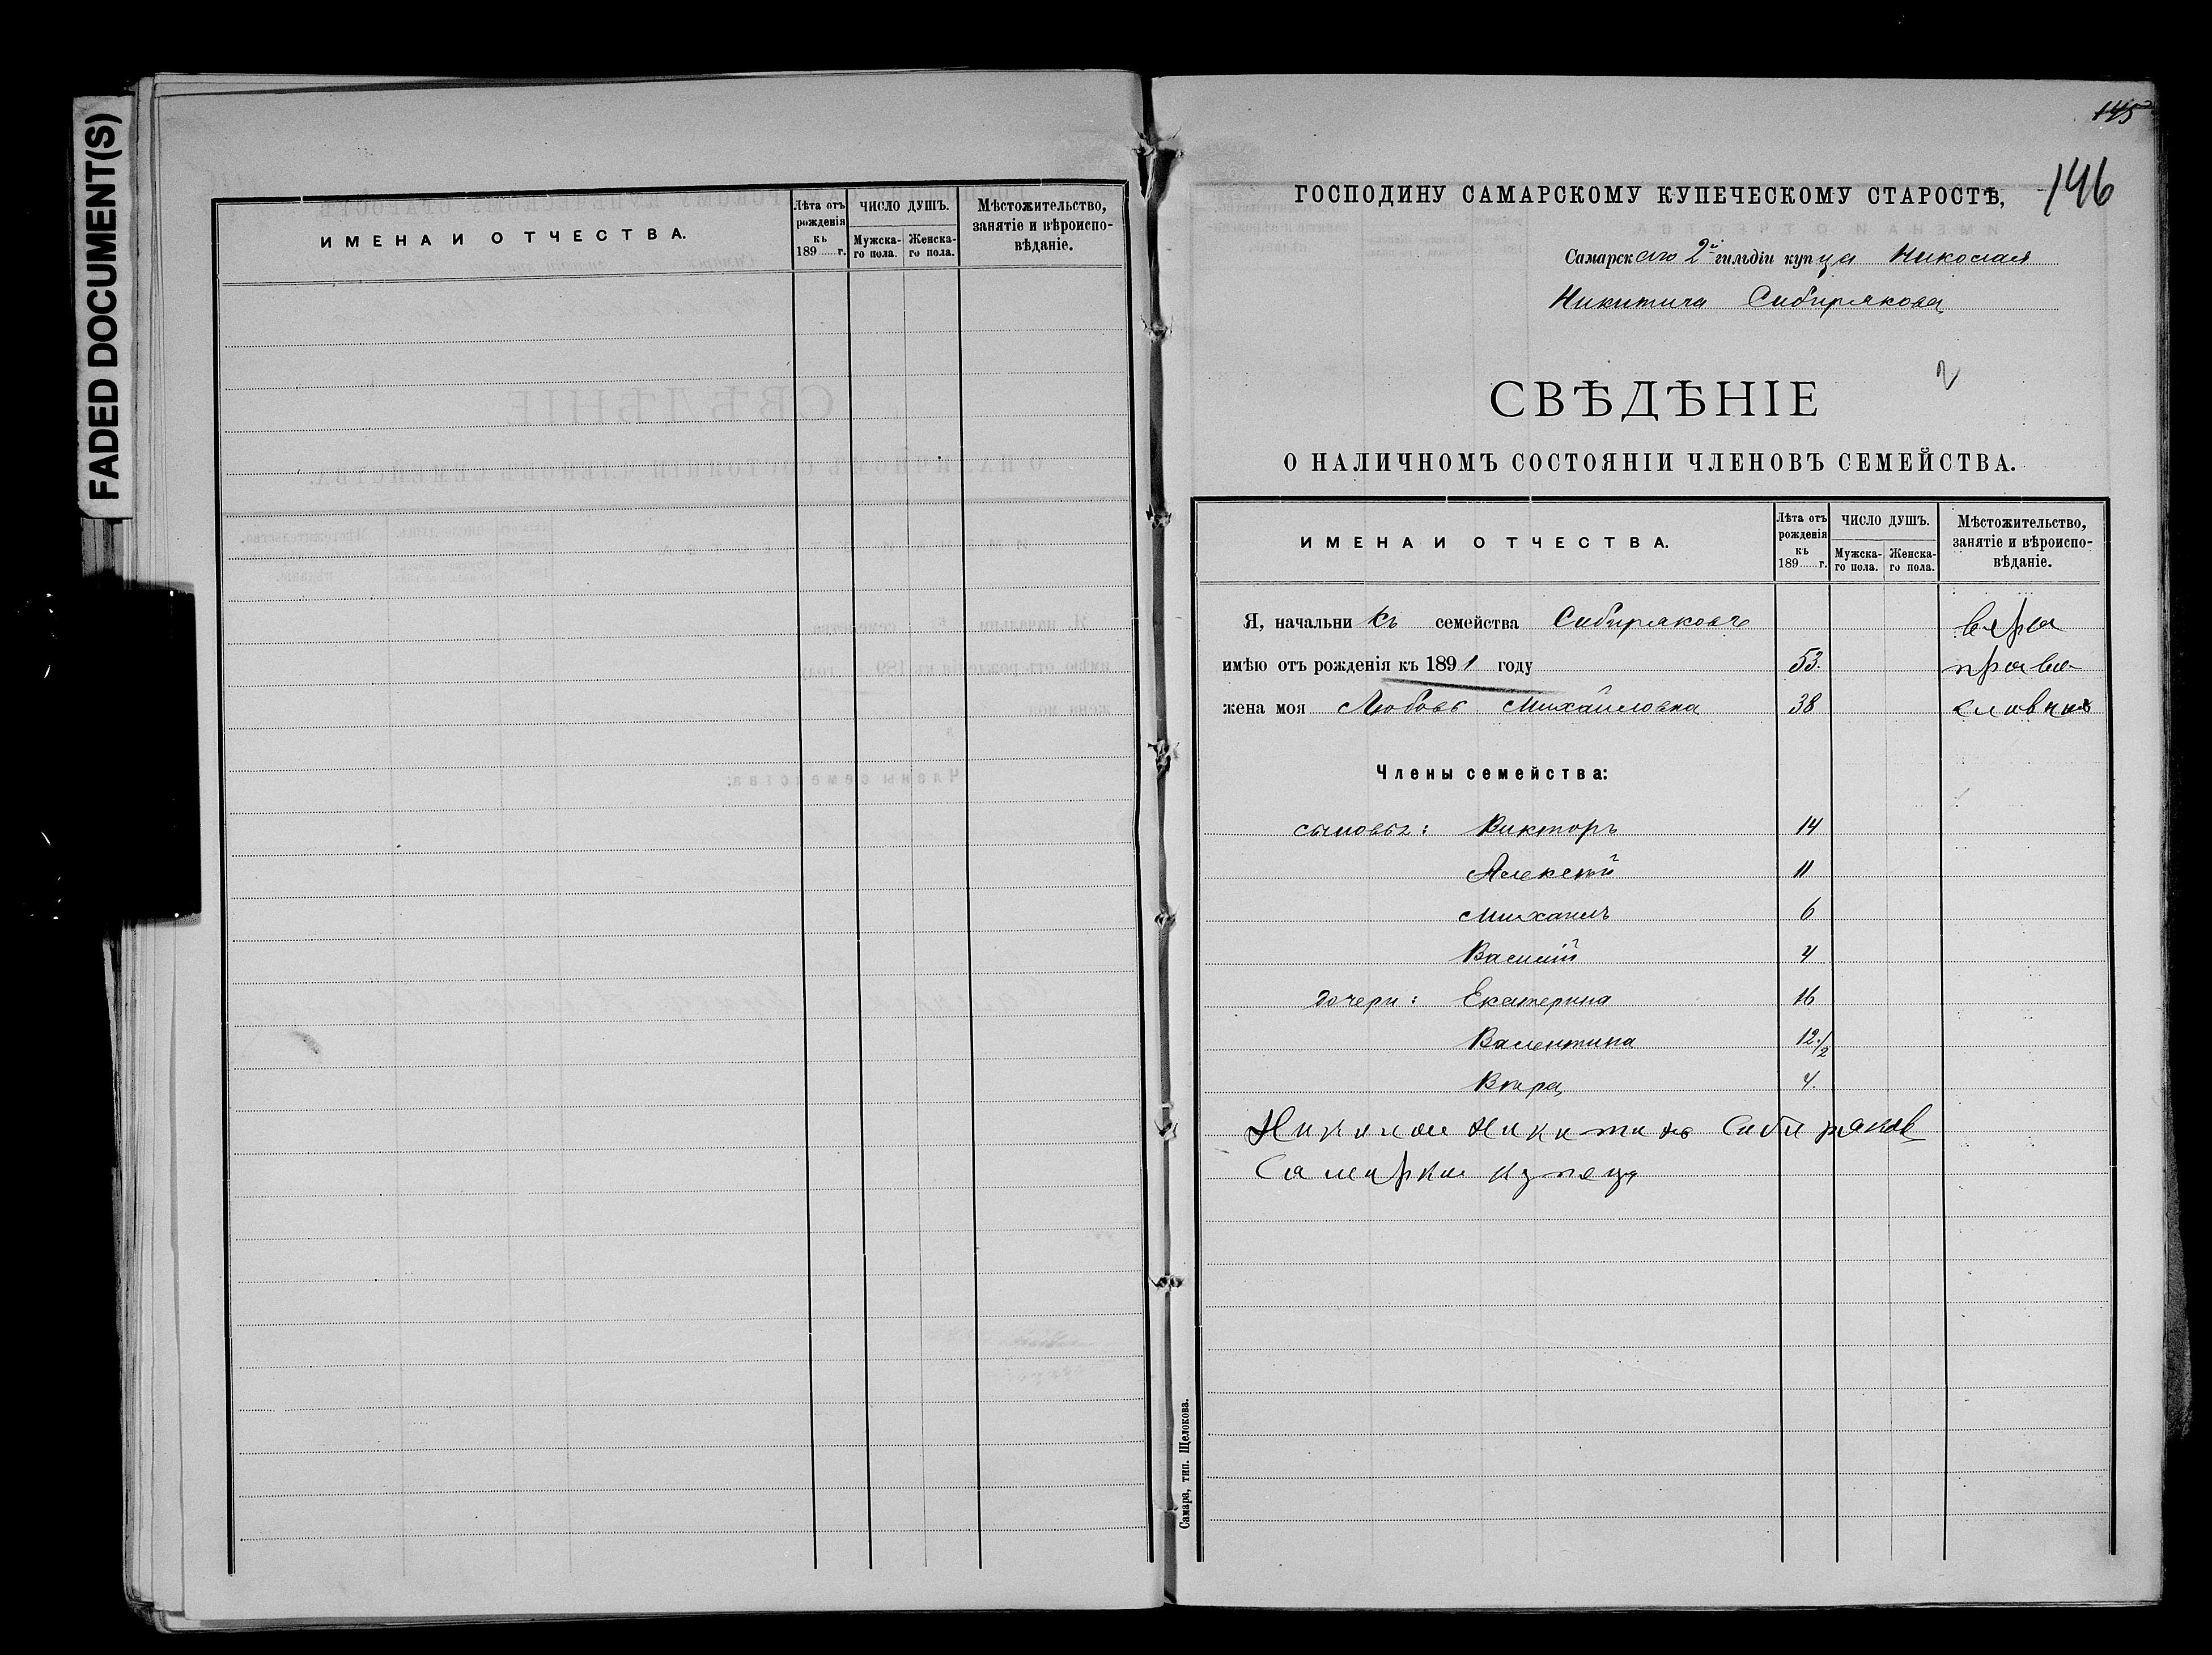 FADED DOCUMENT(S)
ИМЕНА И ОТЧЕСТВА.
Лѣта отъ рожденія къ 189 г.
ЧИСЛО ДУШЪ.
Мужска-го пола.
Женска-го пола.
Мѣстожительство, занятіе и вѣроиспо-вѣданіе.
145
146
ГОСПОДИНУ САМАРСКОМУ КУПЕЧЕСКОМУ СТАРОСТѢ,
Самарскаго 2й гильдіи купца Николая
Никитича Сибирякова
СВѢДѢНІЕ
О НАЛИЧНОМЪ СОСТОЯНІИ ЧЛЕНОВЪ СЕМЕЙСТВА.
ИМЕНА И ОТЧЕСТВА.
Лѣта отъ рожденія къ 189 г.
ЧИСЛО ДУШЪ.
Мужска-го пола.
Женска-го пола.
Мѣстожительство, занятіе и вѣроиспо-вѣданіе.
Я, начальникъ семейства Сибиряковъ вера
имѣю отъ рожденія къ 1891 году 53. право-
жена моя Любовь Михайловна 38 славная
Члены семейства:
сыновья: Викторъ 14
Алексѣй 11
Михаилъ 6
Василій 4
дочери: Екатерина 16
Валентина 12 1/2
Вѣра 4.
Николаи Никитинъ Сибиряков
Самарки купецъ
Самара, тип. Щелокова.